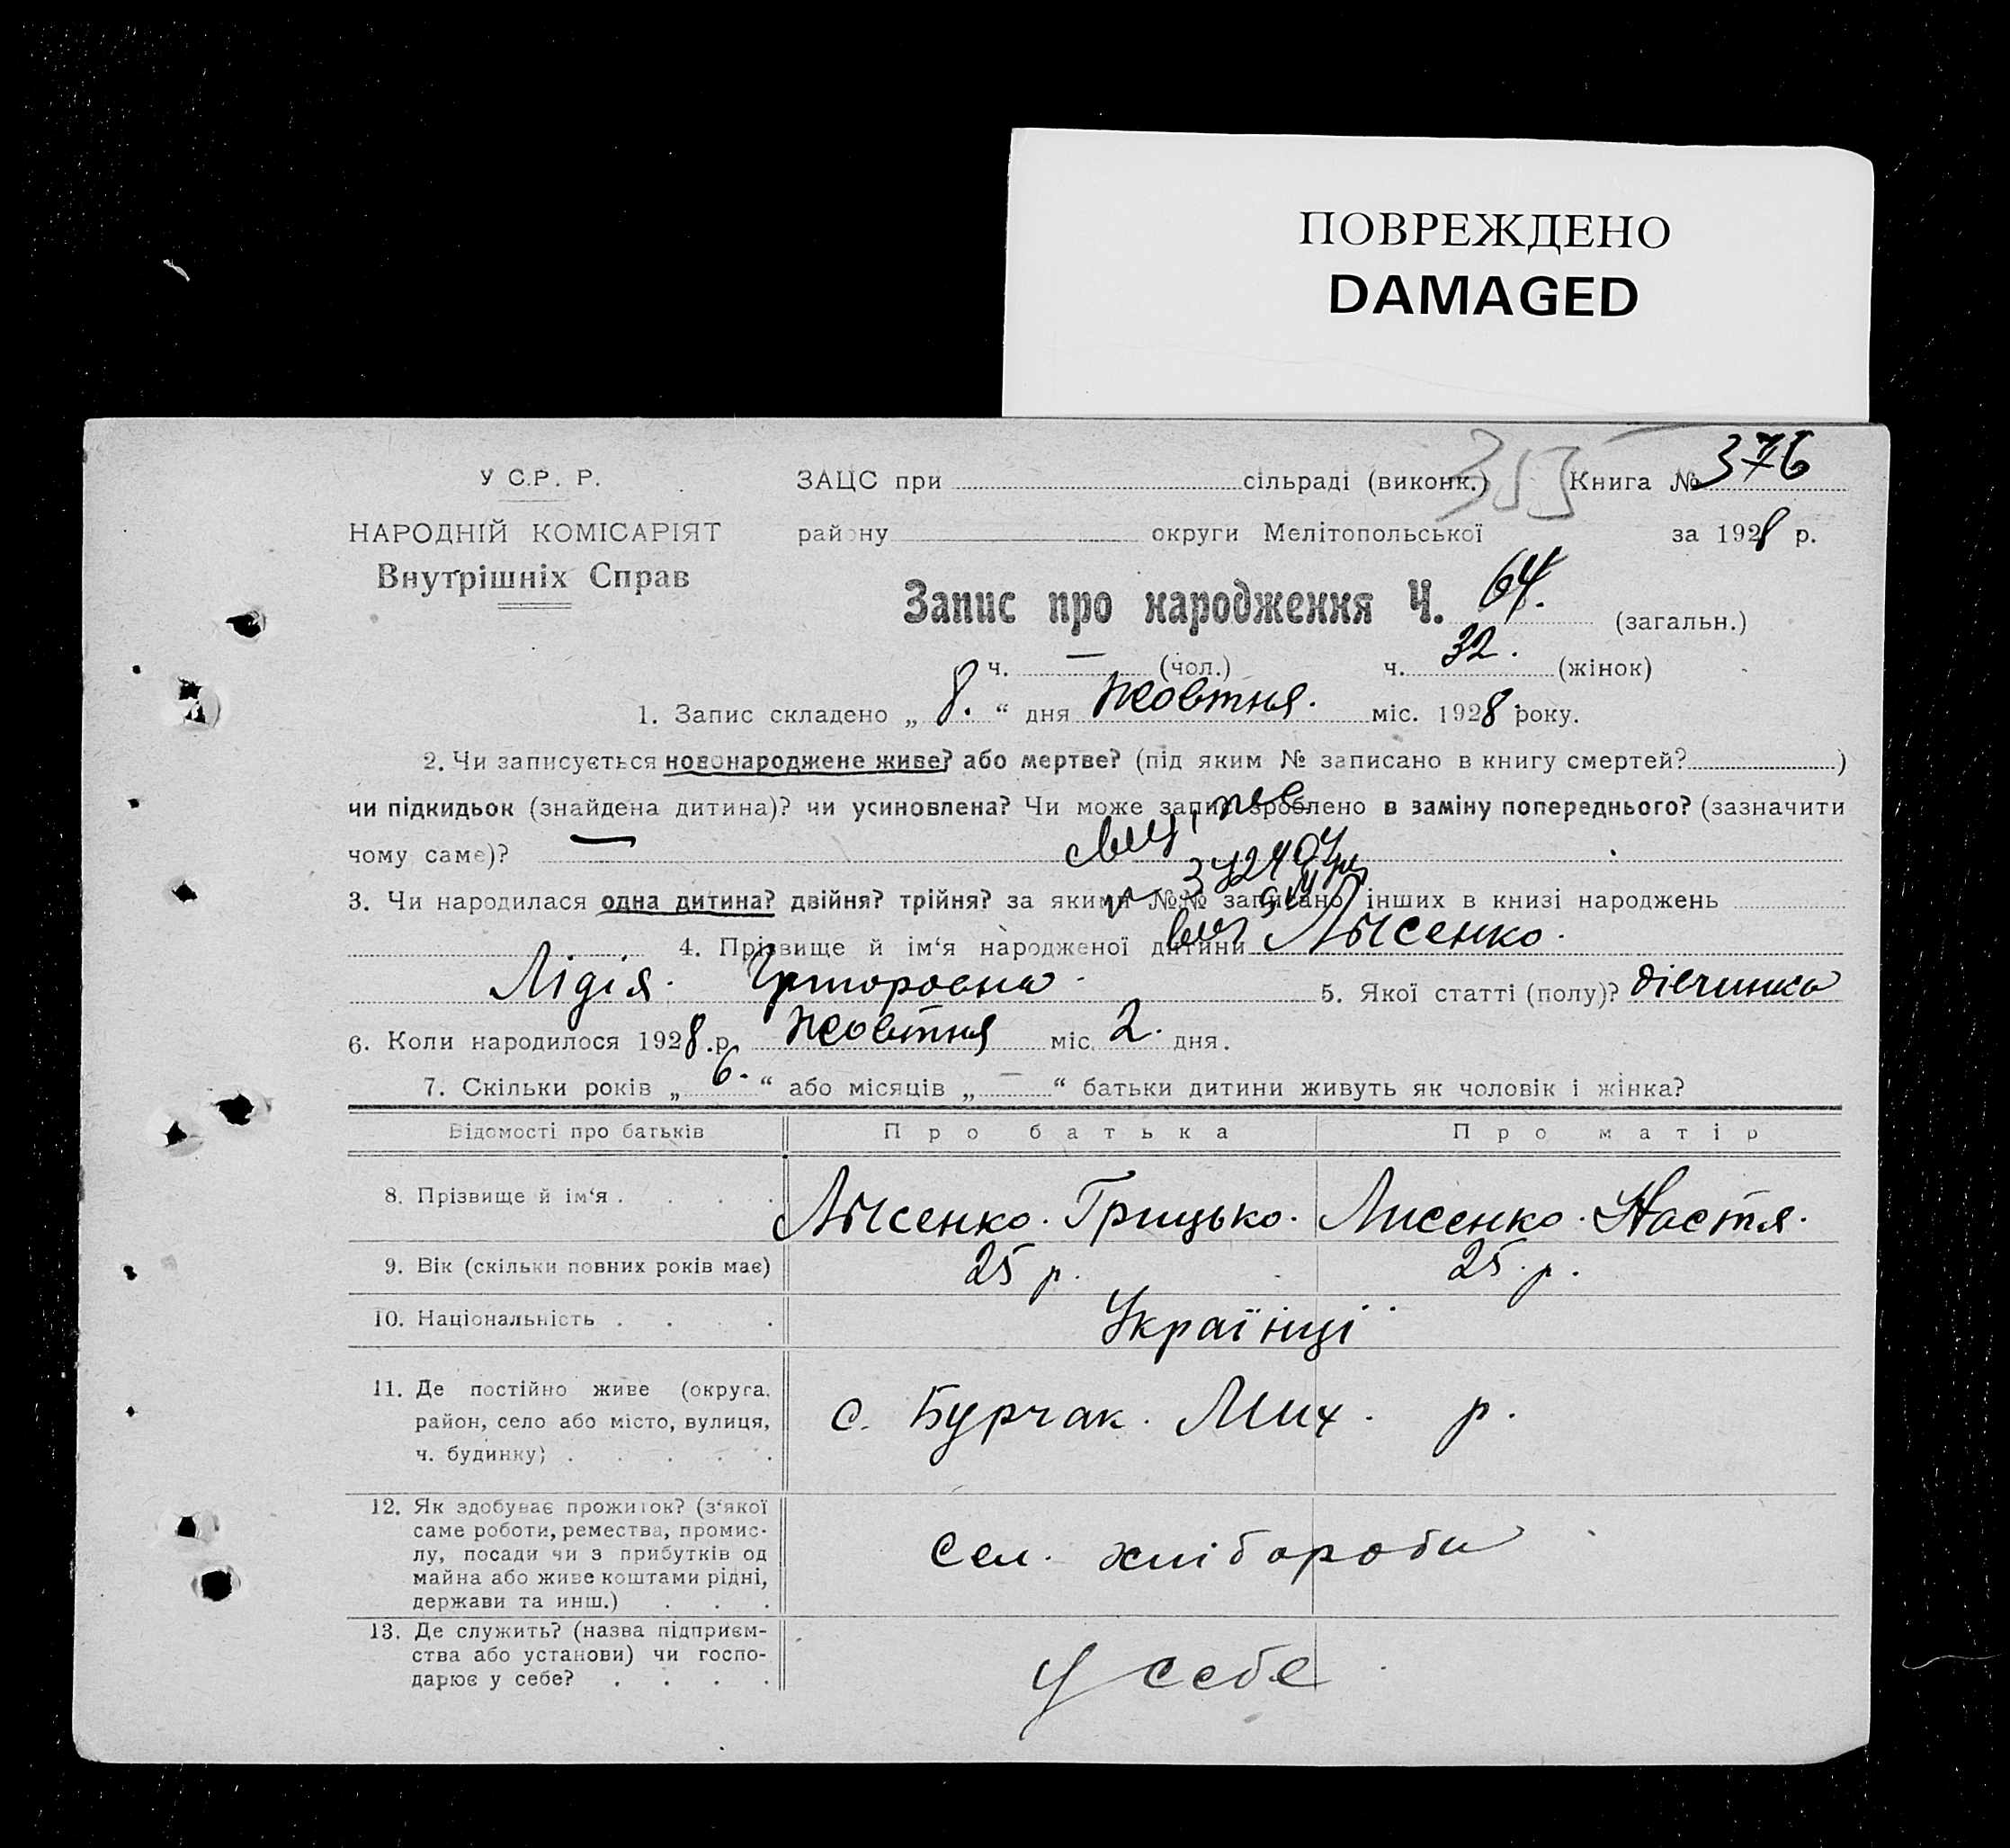 ПОВРЕЖДЕНО
DAMAGED
У С.Р. Р.
НАРОДНІЙ КОМІСАРІЯТ
Внутрішніх Справ
ЗАЦС при сільраді (виконк.) Книга № 376
району округи Мелітопольської за 1928 р.
Запис про народження Ч. 64. (загальн.)
ч. — (чол.) ч. 32. (жінок)
1. Запис складено „ 8. “ дня Жовтня. міс. 1928 року.
2. Чи записується новонароджене живе? або мертве? (під яким № записано в книгу смертей? )
чи підкидьок (знайдена дитина)? чи усиновлена? Чи може запис зроблено в заміну попереднього? (зазначити
чому саме)? —
3. Чи народилася одна дитина? двійня? трійня? за якими №№ записано інших в книзі народжень
4. Прізвище й ім‘я народженої дитини Лысенко.
Лідія. 5. Якої статті (полу)? дівчинка
6. Коли народилося 1928.р. Жовтня міс. 2. дня.
7. Скільки років „ 6. “ або місяців „ — “ батьки дитини живуть як чоловік і жінка?
Відомості про батьків Про батька Про матір
8. Прізвище й ім‘я . . . . Лысенко. Грицько. Лисенко. Настя.
9. Вік (скільки повних років має) 25 р. 25. р.
10. Національність . . . . Українці
11. Де постійно живе (округа,
район, село або місто, вулиця,
ч. будинку) . . . . . с. Бурчак. Мих. р.
12. Як здобуває прожиток? (з‘якої
саме роботи, ремества, промис-
лу, посади чи з прибутків од
майна або живе коштами рідні,
держави та инш.) . . . Сел. хлібороби
13. Де служить? (назва підприєм-
ства або установи) чи госпо-
дарює у себе? . . . . У себе